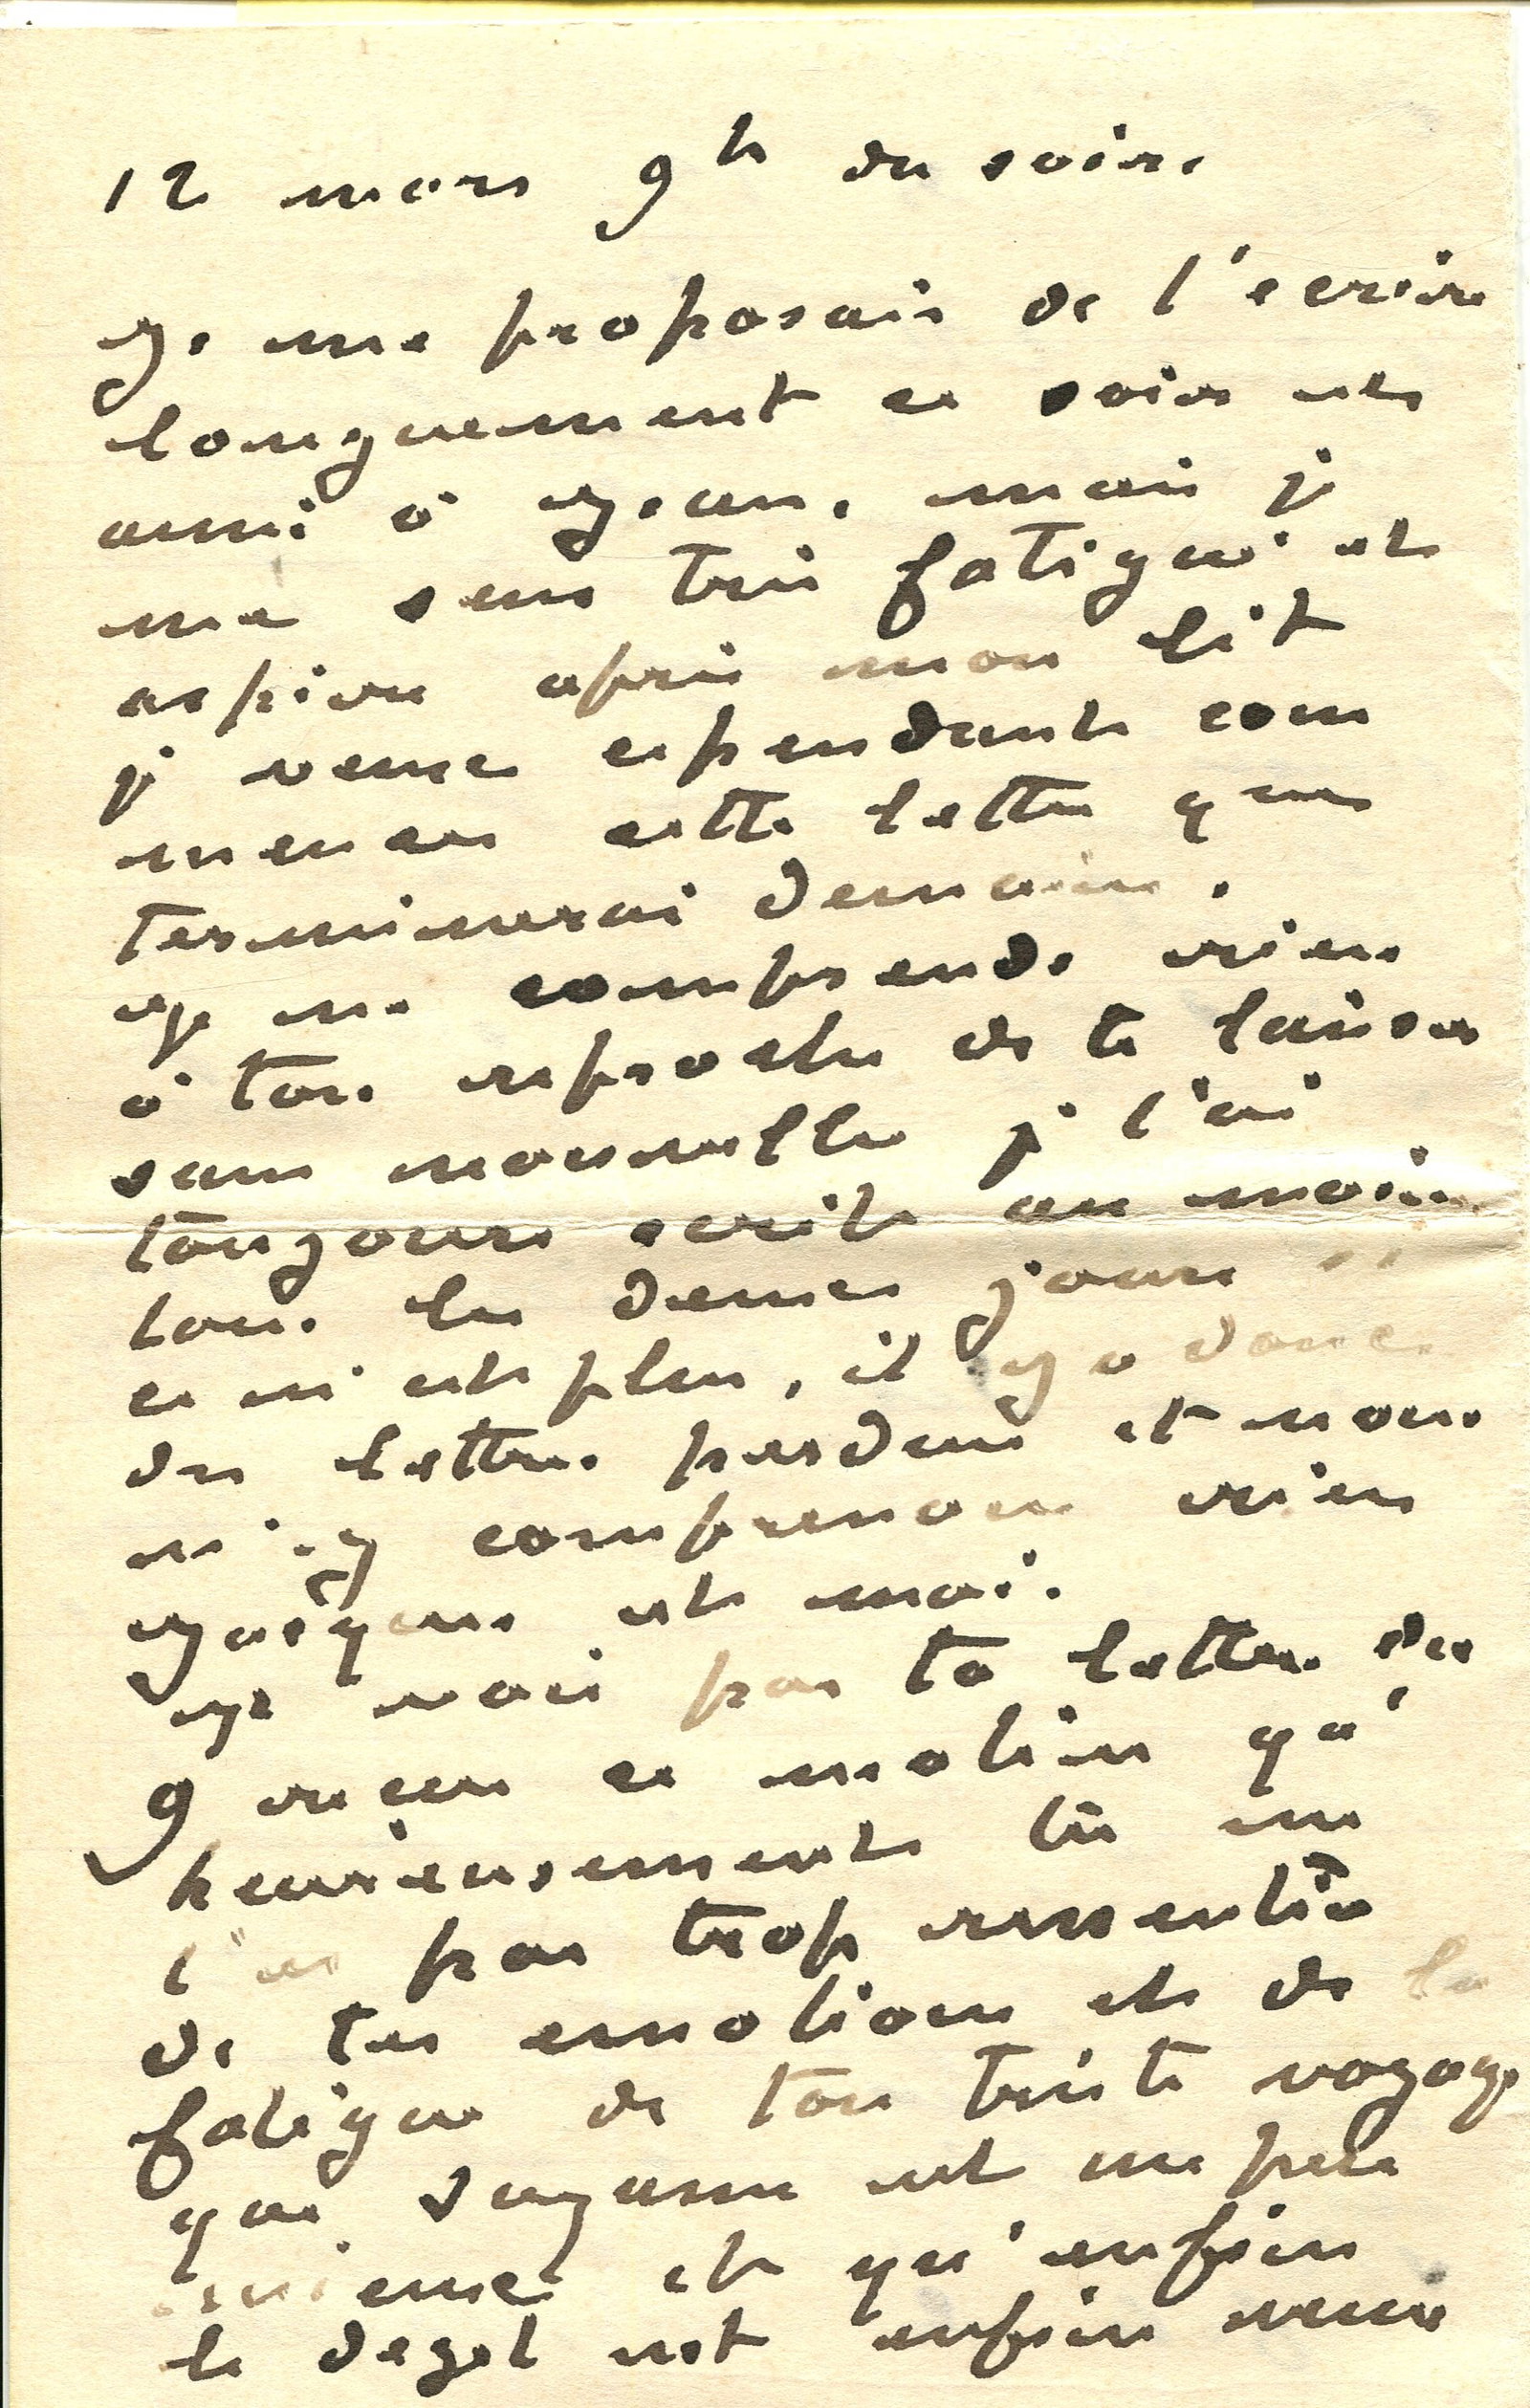 12 mars 9h du soir.
Je me proposais de t'ecrire
longuement ce soir et
aussi à Jean, mais je
me sens très fatigué et
aspire après mon lit
je veux cependant com
mencer cette lettre que
terminerai demain.
Je ne comprends rien
à ton reproche de te laisser
sans nouvelles je t'ai
toujours écrit au moins
tous les deux jours
ce n'est plus, il y a donc
des lettres perdues et nous
n'y comprenons rien
Jacques et moi.
Je vois par ta lettre du
9 reçue ce matin qu'
heureusement tu ne
t'es pas trop ressentie
de tes emotions et de la
fatigue de ton triste voyage
que Suzanne est un peu
mieux et qu'enfin
le degel est enfin venu